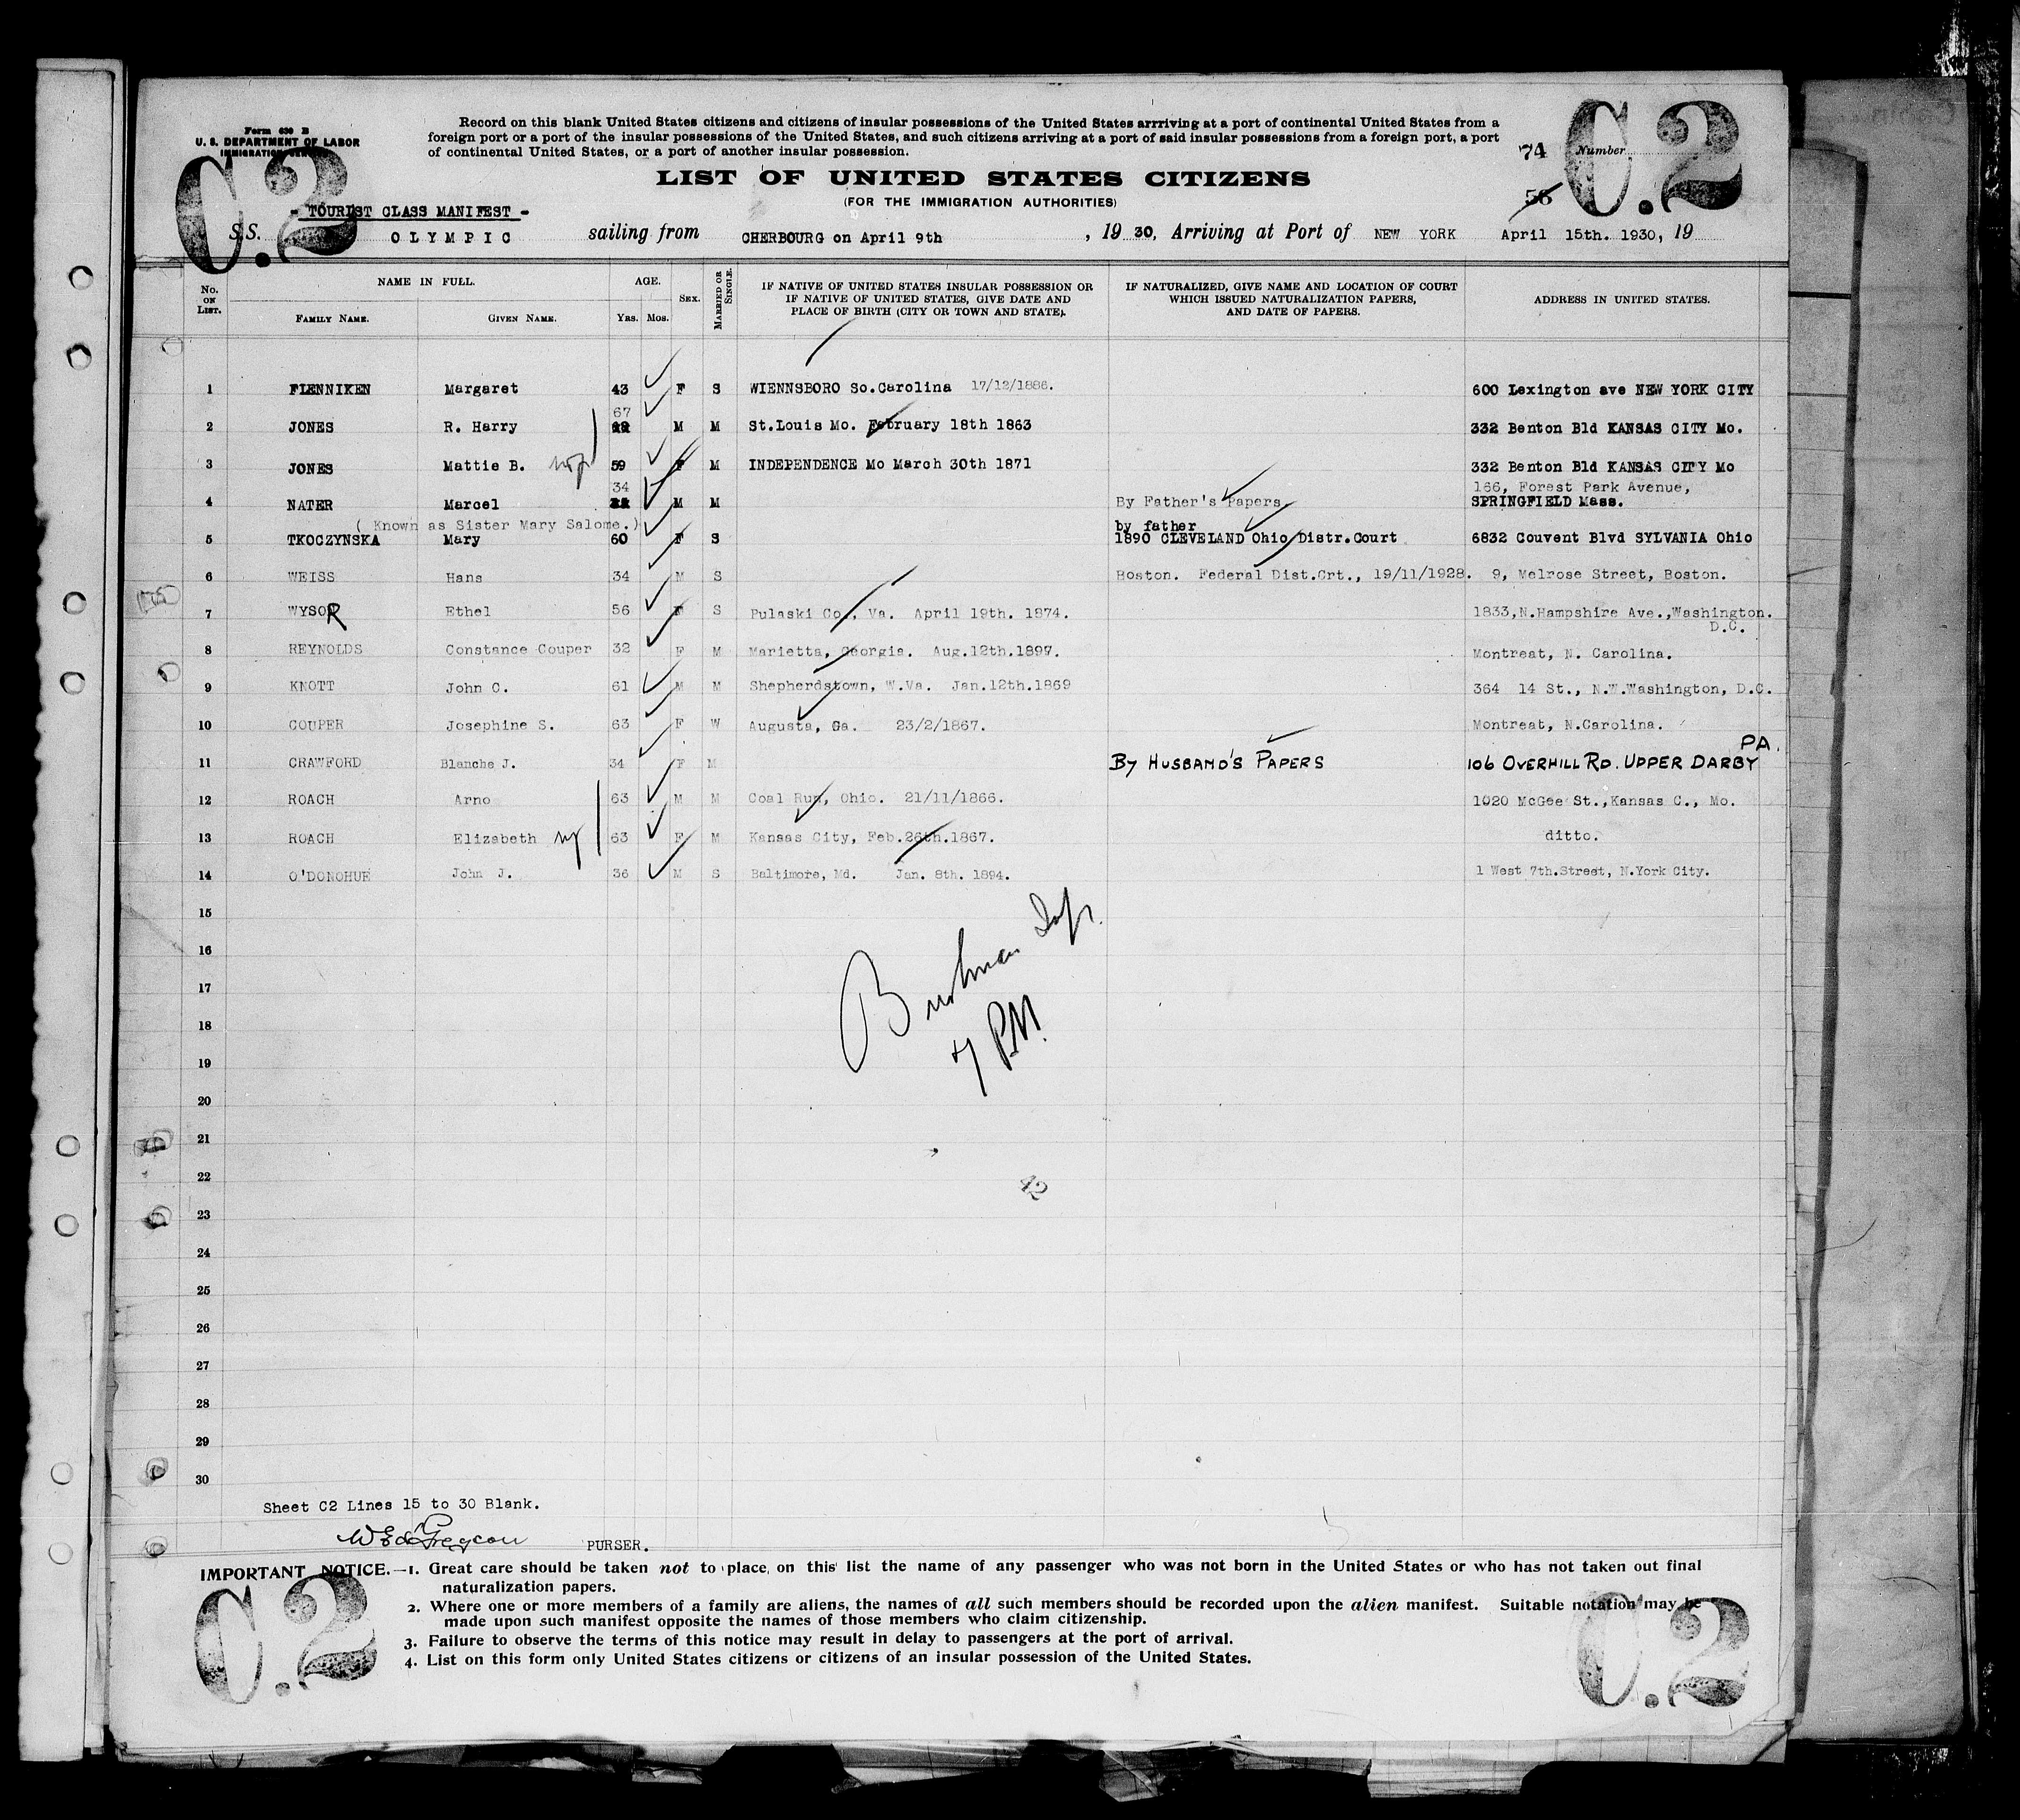 Form 630 B
U. S. DEPARTMENT OF LABOR
IMMIGRATION
C.2
C.2
Record on this blank United States citizens and citizens of insular possessions of the United States arrriving at a port of continental United States from a
foreign port or a port of the insular possessions of the United States, and such citizens arriving at a port of said insular possessions from a foreign port, a port
of continental United States, or a port of another insular possession.
74 Number
56
LIST OF UNITED STATES CITIZENS
(FOR THE IMMIGRATION AUTHORITIES)
- TOURIST CLASS MANIFEST -
S.S. OLYMPIC sailing from CHERBOURG on April 9th , 19 30, Arriving at Port of NEW YORK April 15th. 1930, 19
No. on List. NAME IN FULL. AGE. Sex. Married or Single. IF NATIVE OF UNITED STATES INSULAR POSSESSION OR IF NATIVE OF UNITED STATES, GIVE DATE AND PLACE OF BIRTH (CITY OR TOWN AND STATE). IF NATURALIZED, GIVE NAME AND LOCATION OF COURT WHICH ISSUED NATURALIZATION PAPERS, AND DATE OF PAPERS. ADDRESS IN UNITED STATES.
Family Name. Given Name. Yrs. Mos.
1 FLENNIKEN Margaret 43 F S WIENNSBORO So.Carolina 17/12/1886. 600 Lexington ave NEW YORK CITY
67
2 JONES R. Harry M M St.Louis Mo. February 18th 1863 332 Benton Bld KANSAS CITY Mo.
3 JONES Mattie B. 59 F M INDEPENDENCE Mo March 30th 1871 332 Benton Bld KANSAS CITY Mo
34 166, Forest Park Avenue,
4 NATER Marcel M M By Father's Papers. SPRINGFIELD Mass.
( Known as Sister Mary Salome.) by father
5 TKOCZYNSKA Mary 60 F S 1890 CLEVELAND Ohio Distr.Court 6832 Couvent Blvd SYLVANIA Ohio
6 WEISS Hans 34 M S Boston. Federal Dist.Crt., 19/11/1928. 9, Melrose Street, Boston.
7 WYSOR Ethel 56 F S Pulaski Co., Va. April 19th. 1874. 1833,N.Hampshire Ave.,Washington.
D.C.
8 REYNOLDS Constance Couper 32 F M Marietta, Georgia. Aug.12th.1897. Montreat, N. Carolina.
9 KNOTT John C. 61 M M Shepherdstown, W.Va. Jan.12th.1869 364 14 St., N.W.Washington, D.C.
10 COUPER Josephine S. 63 F W Augusta, Ga. 23/2/1867. Montreat, N.Carolina.
PA.
11 CRAWFORD Blanche J. 34 F M By HUSBAND'S PAPERS 106 OVERHILL RD. UPPER DARBY
12 ROACH Arno 63 M M Coal Run, Ohio. 21/11/1866. 1020 McGee St.,Kansas C., Mo.
13 ROACH Elizabeth 63 F M Kansas City, Feb.26th.1867. ditto.
14 O'DONOHUE John J. 36 M S Baltimore, Md. Jan. 8th. 1894. 1 West 7th.Street, N.York City.
15
16
17
18
19
20
21
22
23
24
25
26
27
28
29
30
7 PM.
42
Sheet C2 Lines 15 to 30 Blank.
PURSER.
IMPORTANT NOTICE.—1. Great care should be taken not to place on this list the name of any passenger who was not born in the United States or who has not taken out final
naturalization papers.
2. Where one or more members of a family are aliens, the names of all such members should be recorded upon the alien manifest. Suitable notation may be
made upon such manifest opposite the names of those members who claim citizenship.
3. Failure to observe the terms of this notice may result in delay to passengers at the port of arrival.
4. List on this form only United States citizens or citizens of an insular possession of the United States.
C.2
C.2